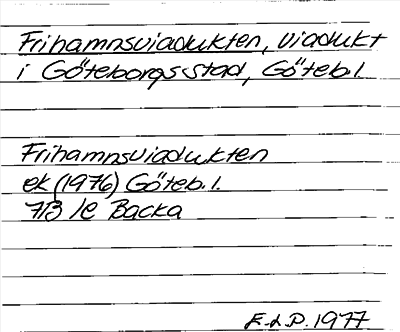 Frihamnsviadukten, viadukt
i Göteborgs stad, Göteb.l.
Frihamnsviadukten
ek (1976) Göteb.l.
7B 1c Backa
E.L.P. 1977